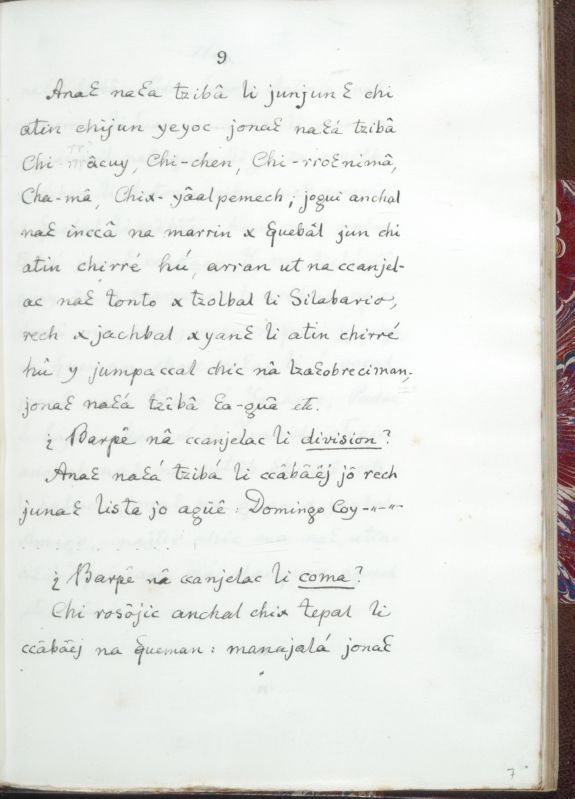 9
Anaꜫ naꜫa tzibâ li junjunꜫ chi
atin chijun yeyoc jonaꜫ naꜫá tzibâ
Chi-rrâcuy, Chi-chen, Chi-rroꜫnimâ,
Cha-mâ, Chix-yâalpemech; jogui anchal
naꜫ inccâ na marrin x ꜫuebâl jun chi
atin chirré hú, arran ut na ccanjel-
ac naꜫ tonto x tzolbal li Silabario,
rech x jachbal xyanꜫ li atin chirré
hû y jumpaccal chic nâ lzaꜫobreciman,
jonaꜫ naꜫá tzîbâ ꜫa-guâ etc.
¿Barpê nâ ccanjelac li division?
Anaꜫ naꜫá tzibá li ccâbâej jô rech
junaꜫ lista jo agüê: Domingo Coy-"-"-
. . . . . . . . .
¿Barpê nâ ccanjelac li coma?
Chi rosôjic anchal chix tepal li
ccâbâej na ꜫueman: manajalá jonaꜫ
7